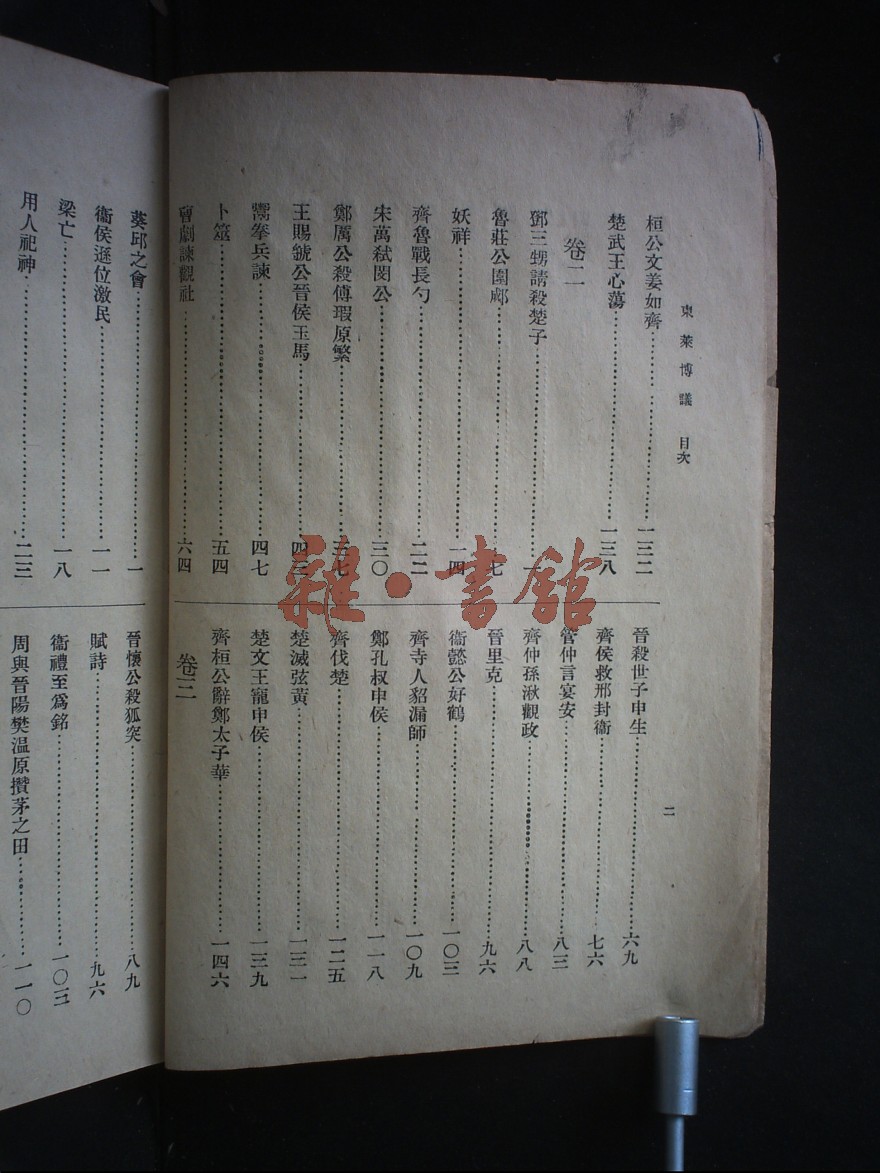 東萊博議 目次
二
桓公文姜如齊 一三二
楚武王心蕩 一三八
卷二
鄧三甥請殺楚子 一
魯莊公圍郕 七
妖祥 一四
齊魯戰長勺 二二
宋萬弒閔公 三〇
鄭厲公殺傅瑕原繁 三七
王賜虢公晉侯玉馬 四三
鬻拳兵諫 四七
卜筮 五四
曹劌諫觀社 六四
晉殺世子申生 六九
齊侯救邢封衞 七六
管仲言宴安 八三
齊仲孫湫觀政 八八
晉里克 九六
衞懿公好鶴 一〇三
齊寺人貂漏師 一〇九
鄭孔叔申侯 一一八
齊伐楚 一二五
楚滅弦黃 一三一
楚文王寵申侯 一三九
齊桓公辭鄭太子華 一四六
卷三
葵邱之會 一
衞侯遜位激民 一一
梁亡 一八
用人祀神 二三
晉懷公殺狐突 八九
賦詩 九六
衞禮至爲銘 一〇三
周與晉陽樊溫原攢茅之田 一一〇
雜·書館